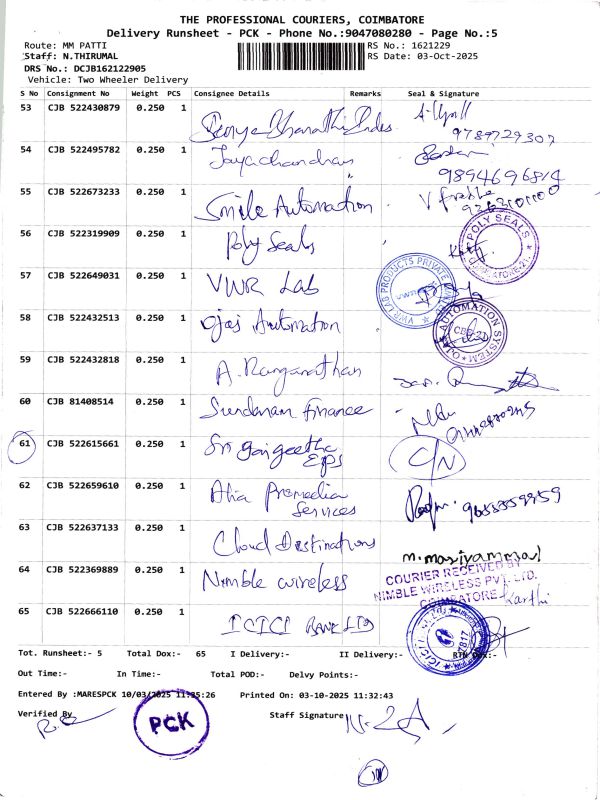 THE PROFESSIONAL COURIERS, COIMBATORE
Delivery Runsheet - PCK - Phone No.:9047080280 - Page No.:5
Route: MM PATTI RS No.: 1621229
Staff: N.THIRUMAL RS Date: 03-Oct-2025
DRS No.: DCJB162122905
Vehicle: Two Wheeler Delivery
S No Consignment No Weight PCS Consignee Details Remarks Seal & Signature
53 CJB 522430879 0.250 1
9789729307
54 CJB 522495782 0.250 1 Jayachandran
9894696814
55 CJB 522673233 0.250 1 Smile Automation
56 CJB 522319909 0.250 1 Poly Seals
POLY SEALS
57 CJB 522649031 0.250 1 VWR Lab
VWR LAB PRODUCTS PRIVATE
58 CJB 522432513 0.250 1 Ojas Automation
OJAS AUTOMATION SYSTEM
59 CJB 522432818 0.250 1 A. Ranganathan
60 CJB 81408514 0.250 1 Sundaram Finance
61 CJB 522615661 0.250 1 Sri
C/N
62 CJB 522659610 0.250 1 Promedia
Services
63 CJB 522637133 0.250 1 Cloud Destinations
m. mariyammal
64 CJB 522369889 0.250 1 Nimble wireless
COURIER RECEIVED BY
NIMBLE WIRELESS PVT. LTD.
COIMBATORE Karthi
65 CJB 522666110 0.250 1 ICICI BANK LTD
Tot. Runsheet:- 5 Total Dox:- 65 I Delivery:- II Delivery:- RTN Dox:-
Out Time:- In Time:- Total POD:- Delvy Points:-
Entered By :MARESPCK 10/03/2025 11:35:26 Printed On: 03-10-2025 11:32:43
Verified By Staff Signature
PCK